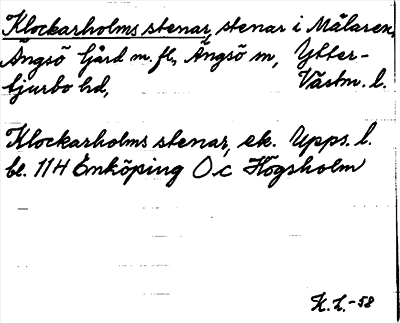 Klockarholms stenar, stenar i Mälaren,
Ängsö fjärd m. fl., Ängsö sn, Ytter-
tjurbo hd, Västm. l.
Klockarholms stenar, ek. Upps. l.
bl. 114 Enköping O c Högsholm
K. L. -58